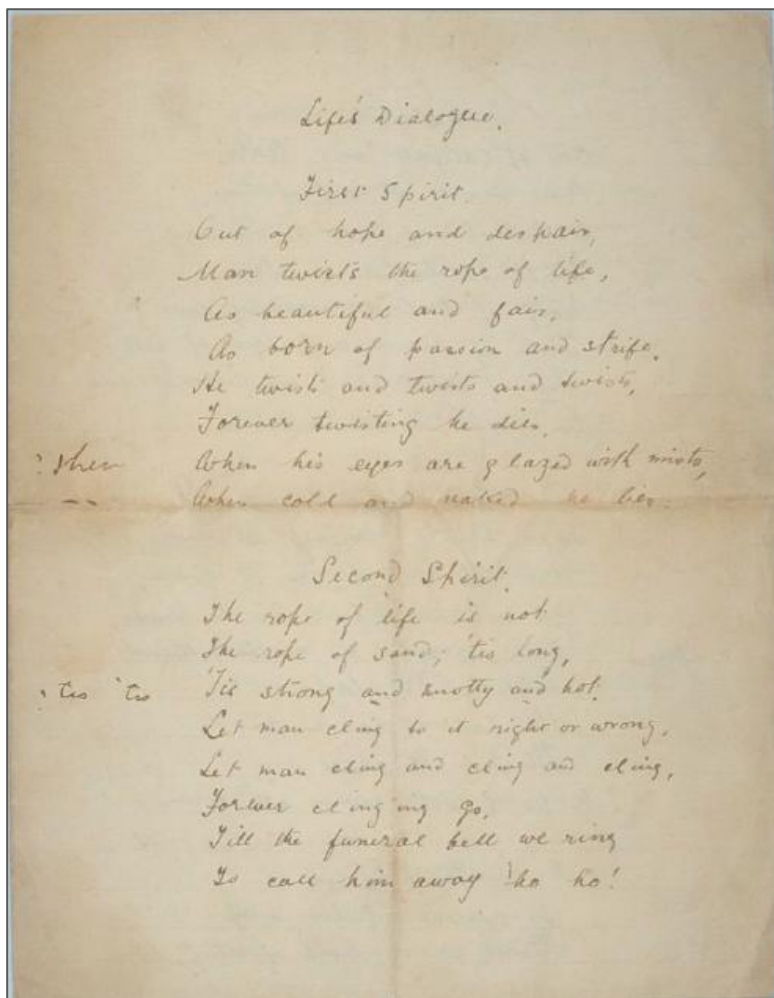 Life's Dialogue.
First Spirit
Out of hope and despair,
Man twists the rope of life,
As beautiful and fair,
As born of passion and strife.
He twists and twists and twists,
Forever twisting he dies.
? Then When his eyes are glazed with mists,
When cold and naked he lies.
Second Spirit.
The rope of life is not
The rope of sand; 'tis long,
? 'tis 'tis 'Tis strong and knotty and hot.
Let man cling to it right or wrong,
Let man cling and cling and cling,
Forever clinging go,
Till the funeral bell we ring
To call him away 'ho ho!